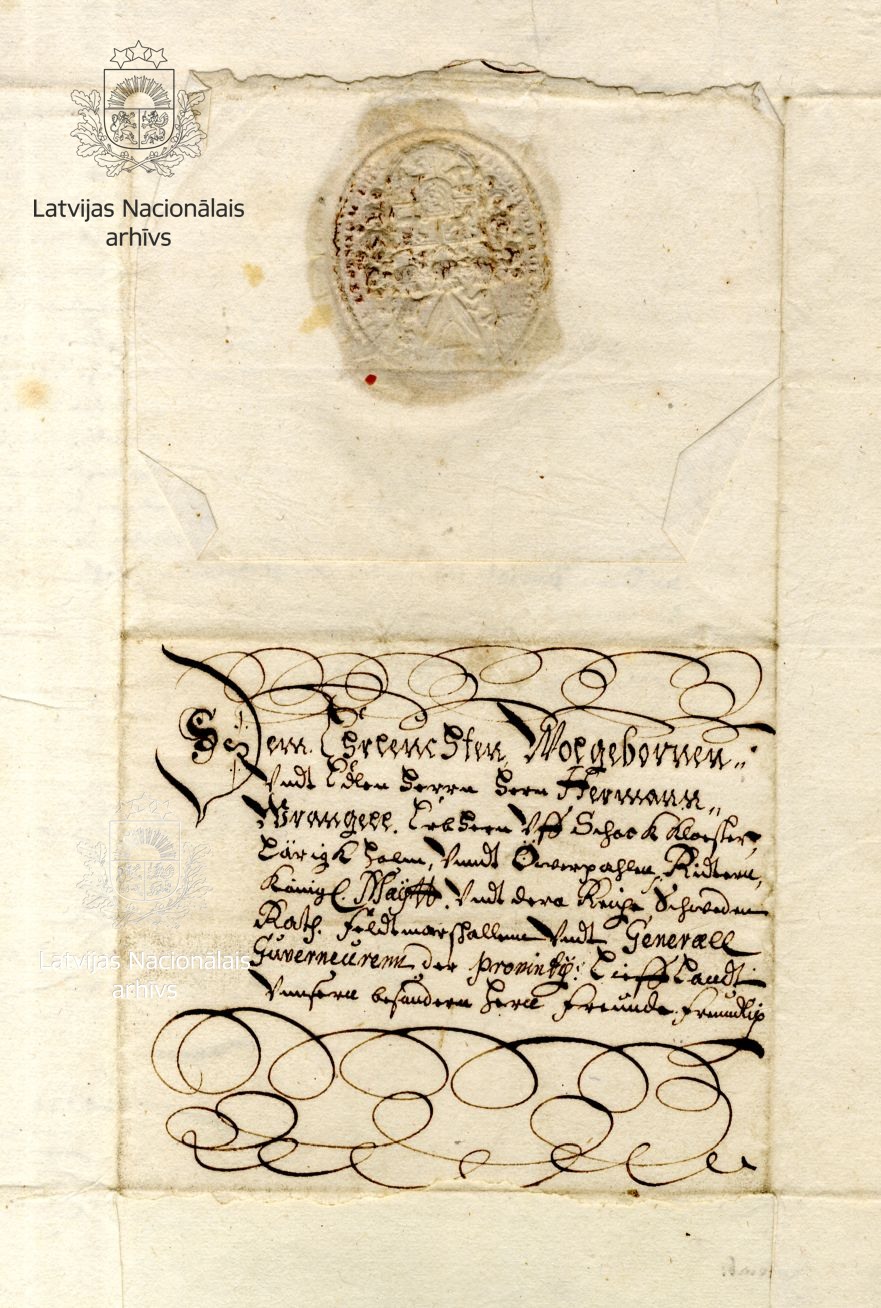 Latvijas Nacionālais
arhīvs
Dem Ehrenvesten, Wolgebornen
Vndt Edlen Herrn Hern Hermann
Wrangell. Erbhern Vff Schock Kloester,
holm, Vnndt Öwerpahlen, Ridtern,
Königl. Maÿtt. Vndt dero Reiche Schweden
Rath. Feldtmarschallenn Vndt Generall
Guverneurenn der Provintz: Liefflandt
Vnnsern besondern Hern Freunde. Freundlich
Latvijas Nacionālais
arhīvs